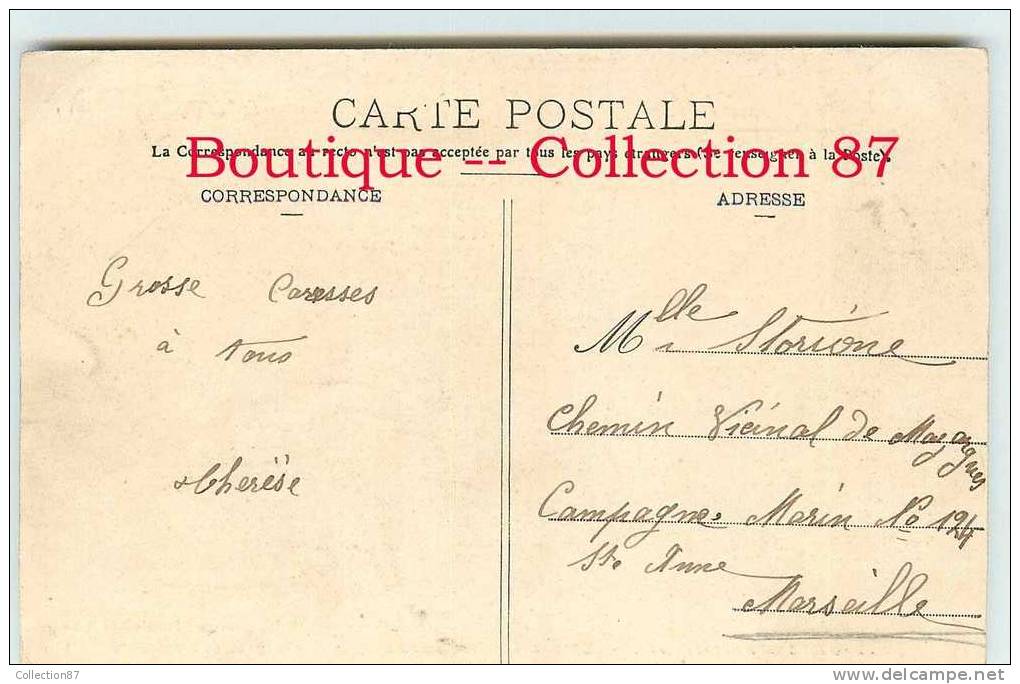 CARTE POSTALE
Boutique -- Collection 87
La Correspondance au recto n'est pas acceptée par tous les pays étrangers (Se renseigner à la Poste).
CORRESPONDANCE
Grosse Caresses
à tous
Thérèse
ADRESSE
Mlle Storione
Chemin Vicinal de Mazargues
Campagne Morin No 124
Ste Anne
Marseille
Collection87
www.delcampe.net